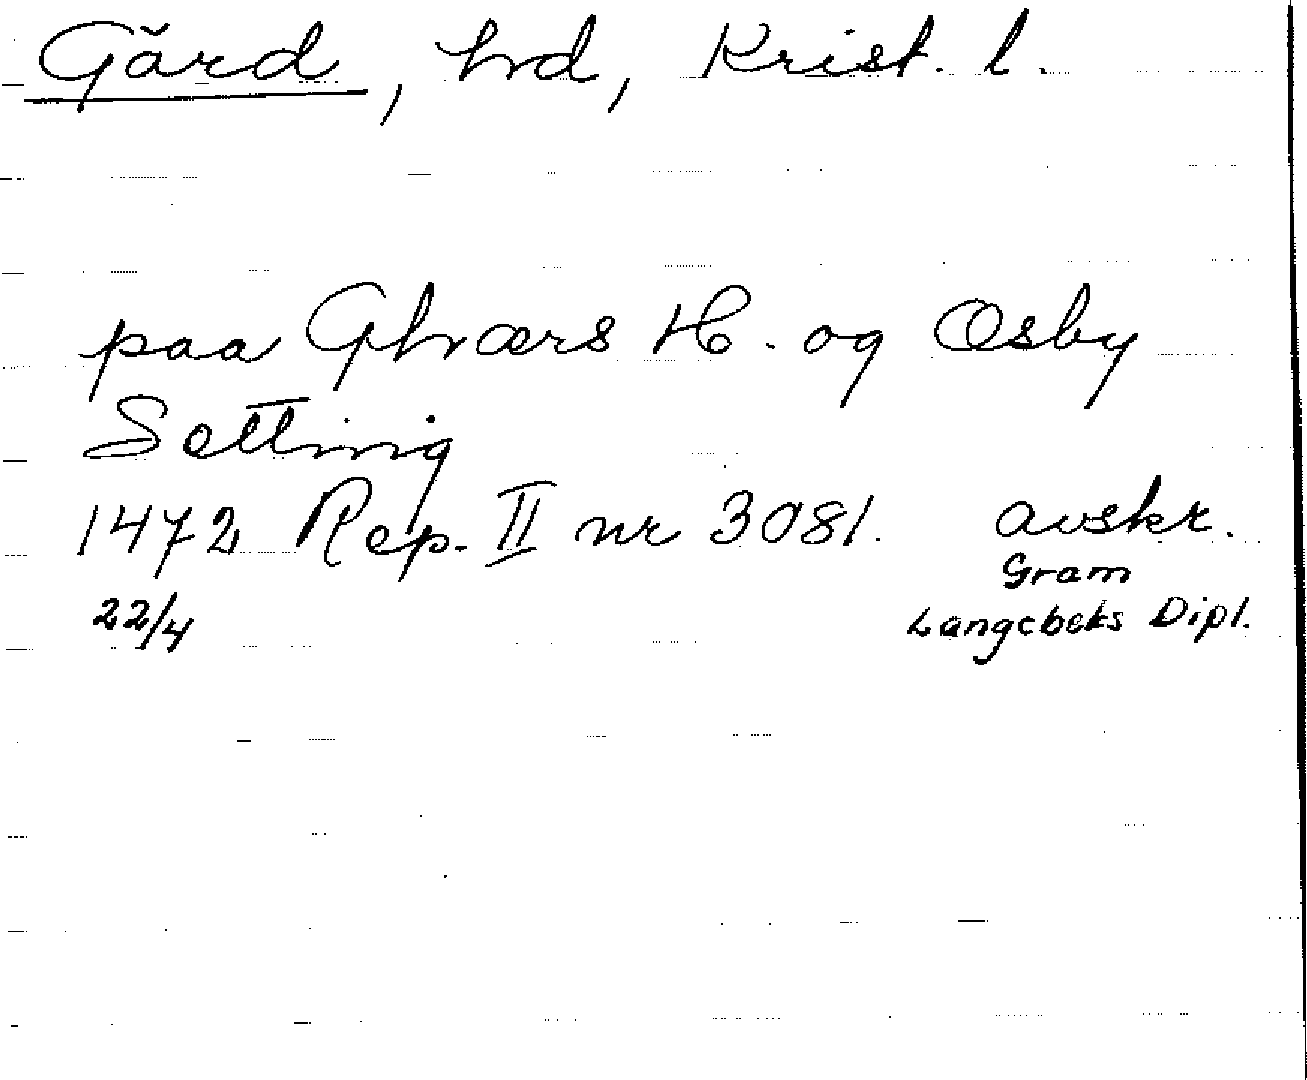 Gärd, hrd, Krist. l.
paa Ghrærs H. og Osby
Setting
1472 Rep. II nr 3081. avskr.
22/4 Gram
Langebeks Dipl.